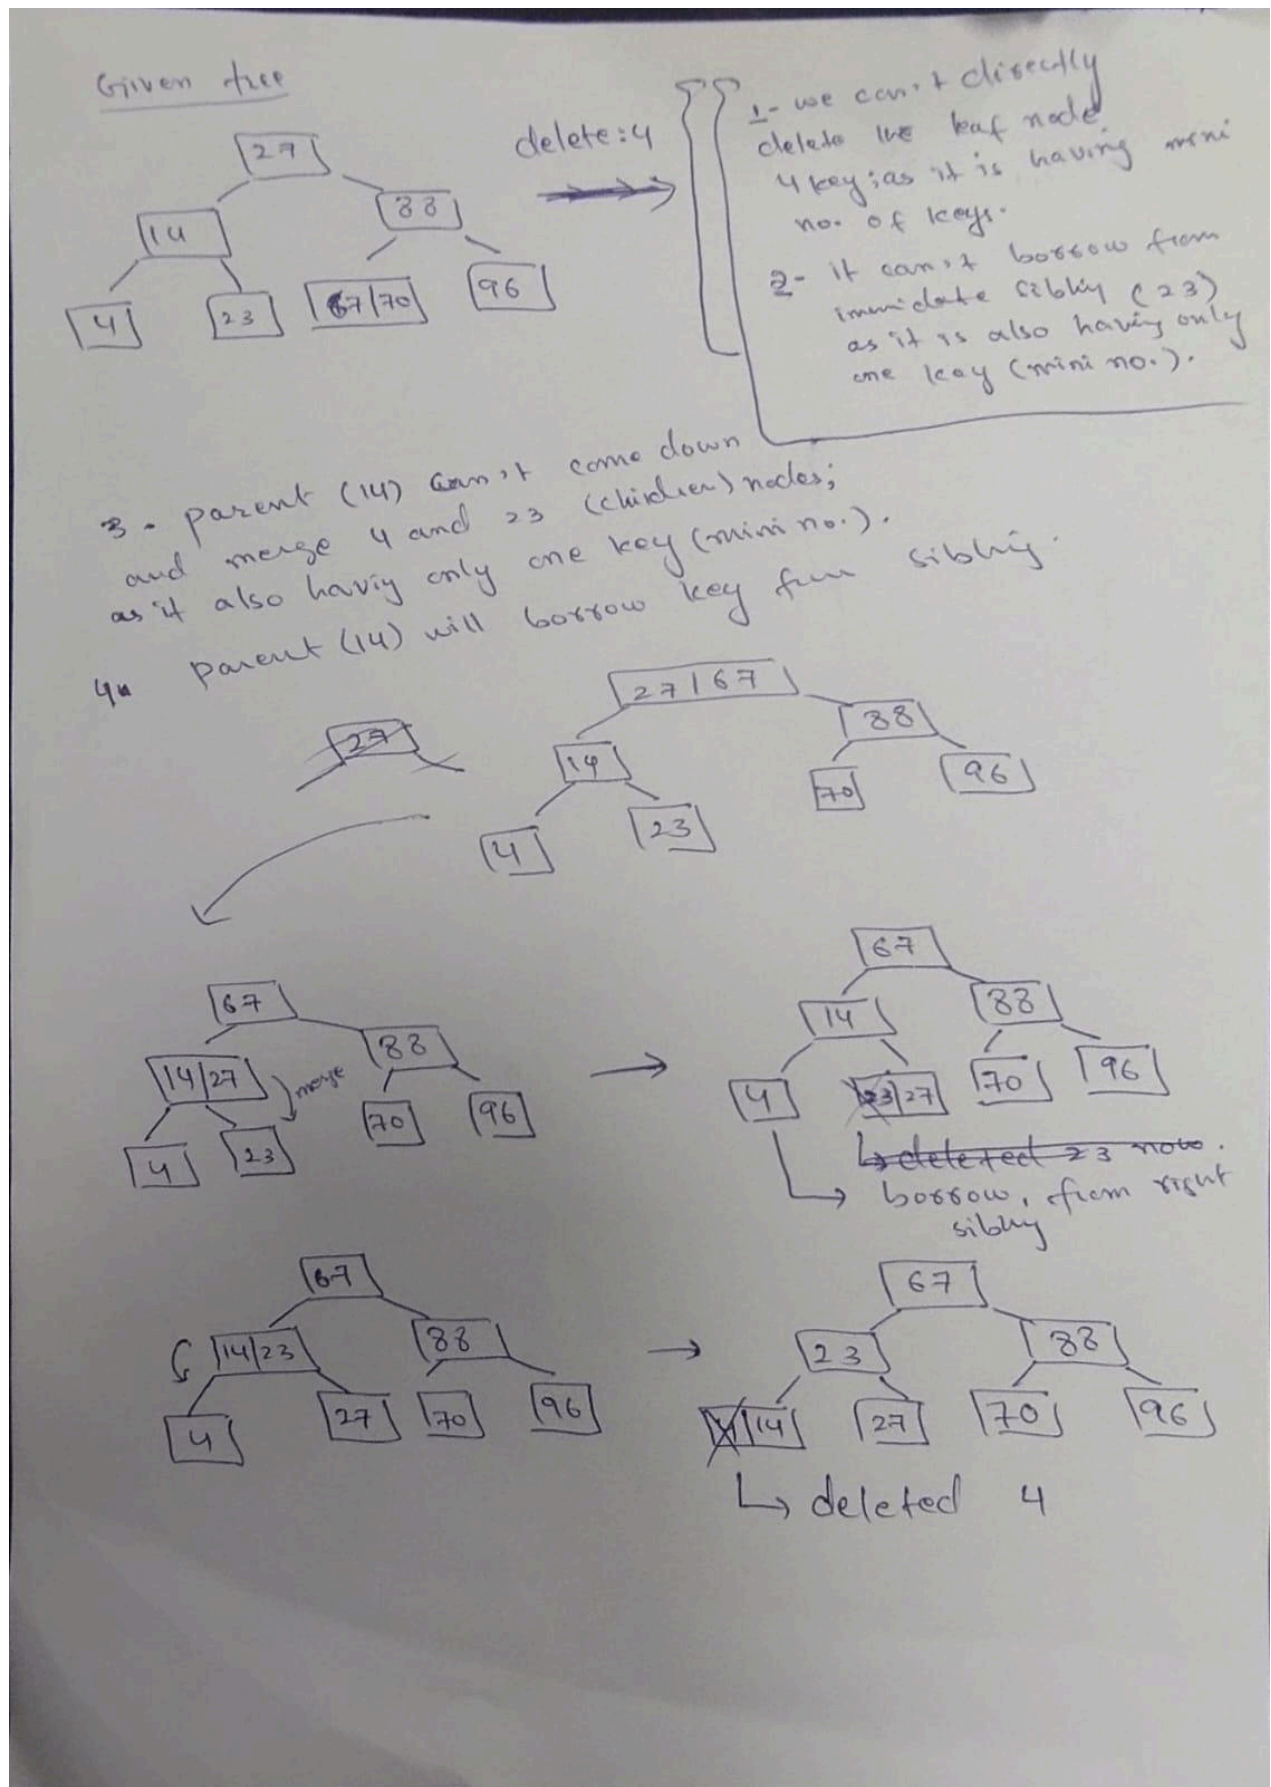 Given tree
delete: 4
27
14
88
4
23
67|70
96
1- we can't directly
delete the leaf node
4 key; as it is having mini
no. of keys.
2- it can't borrow from
immidate sibling (23)
as it is also having only
one key (mini no.).
3- parent (14) can't come down
and merge 4 and 23 (children) nodes;
as it also having only one key (mini no.).
4. parent (14) will borrow key from sibling.
27
27|67
14
88
4
23
70
96
67
14|27
merge
88
4
23
70
96
67
14
88
4
23|27
70
96
deleted 23 now.
borrow, from right
sibling
67
14|23
88
4
27
70
96
67
23
88
4|14
27
70
96
deleted 4